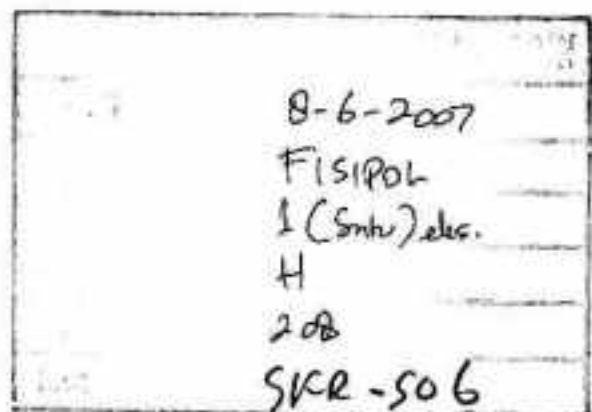 8-6-2007
FISIPOL
1 (Satu) eks.
H
208
SKR-506